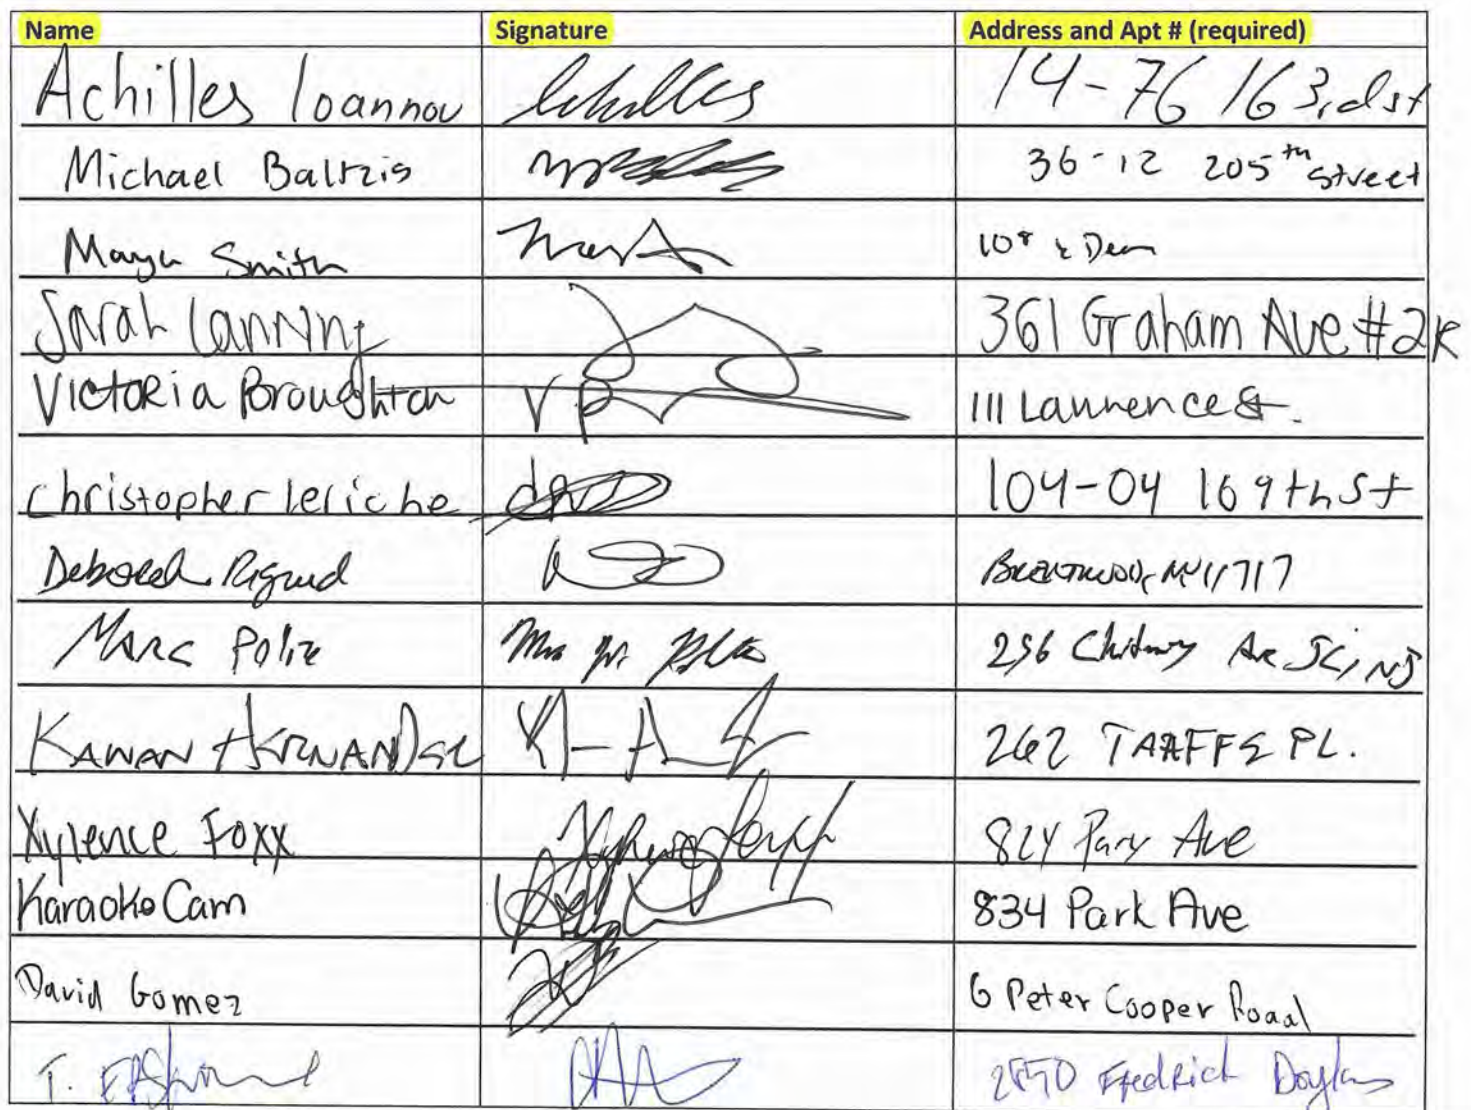 Name Signature Address and Apt # (required)
Achilles Ioannou Achilles 14-76 163rd st
Michael Baltzis 36-12 205th street
Maya Smith
Sarah Lanning 361 Graham Ave #2R
Victoria Broughton VB 111 Lawrence St.
Christopher leriche 104-04 169th St
Deborah Rigaud Brentwood, NY 11717
Marc Polite 256 Ave JC, NJ
Kawan Hernandez 262 TAAFFE PL.
Xylence Foxx 824 Park Ave
Karaoke Cam 834 Park Ave
David Gomez 6 Peter Cooper Road
T. Fredrick Douglas